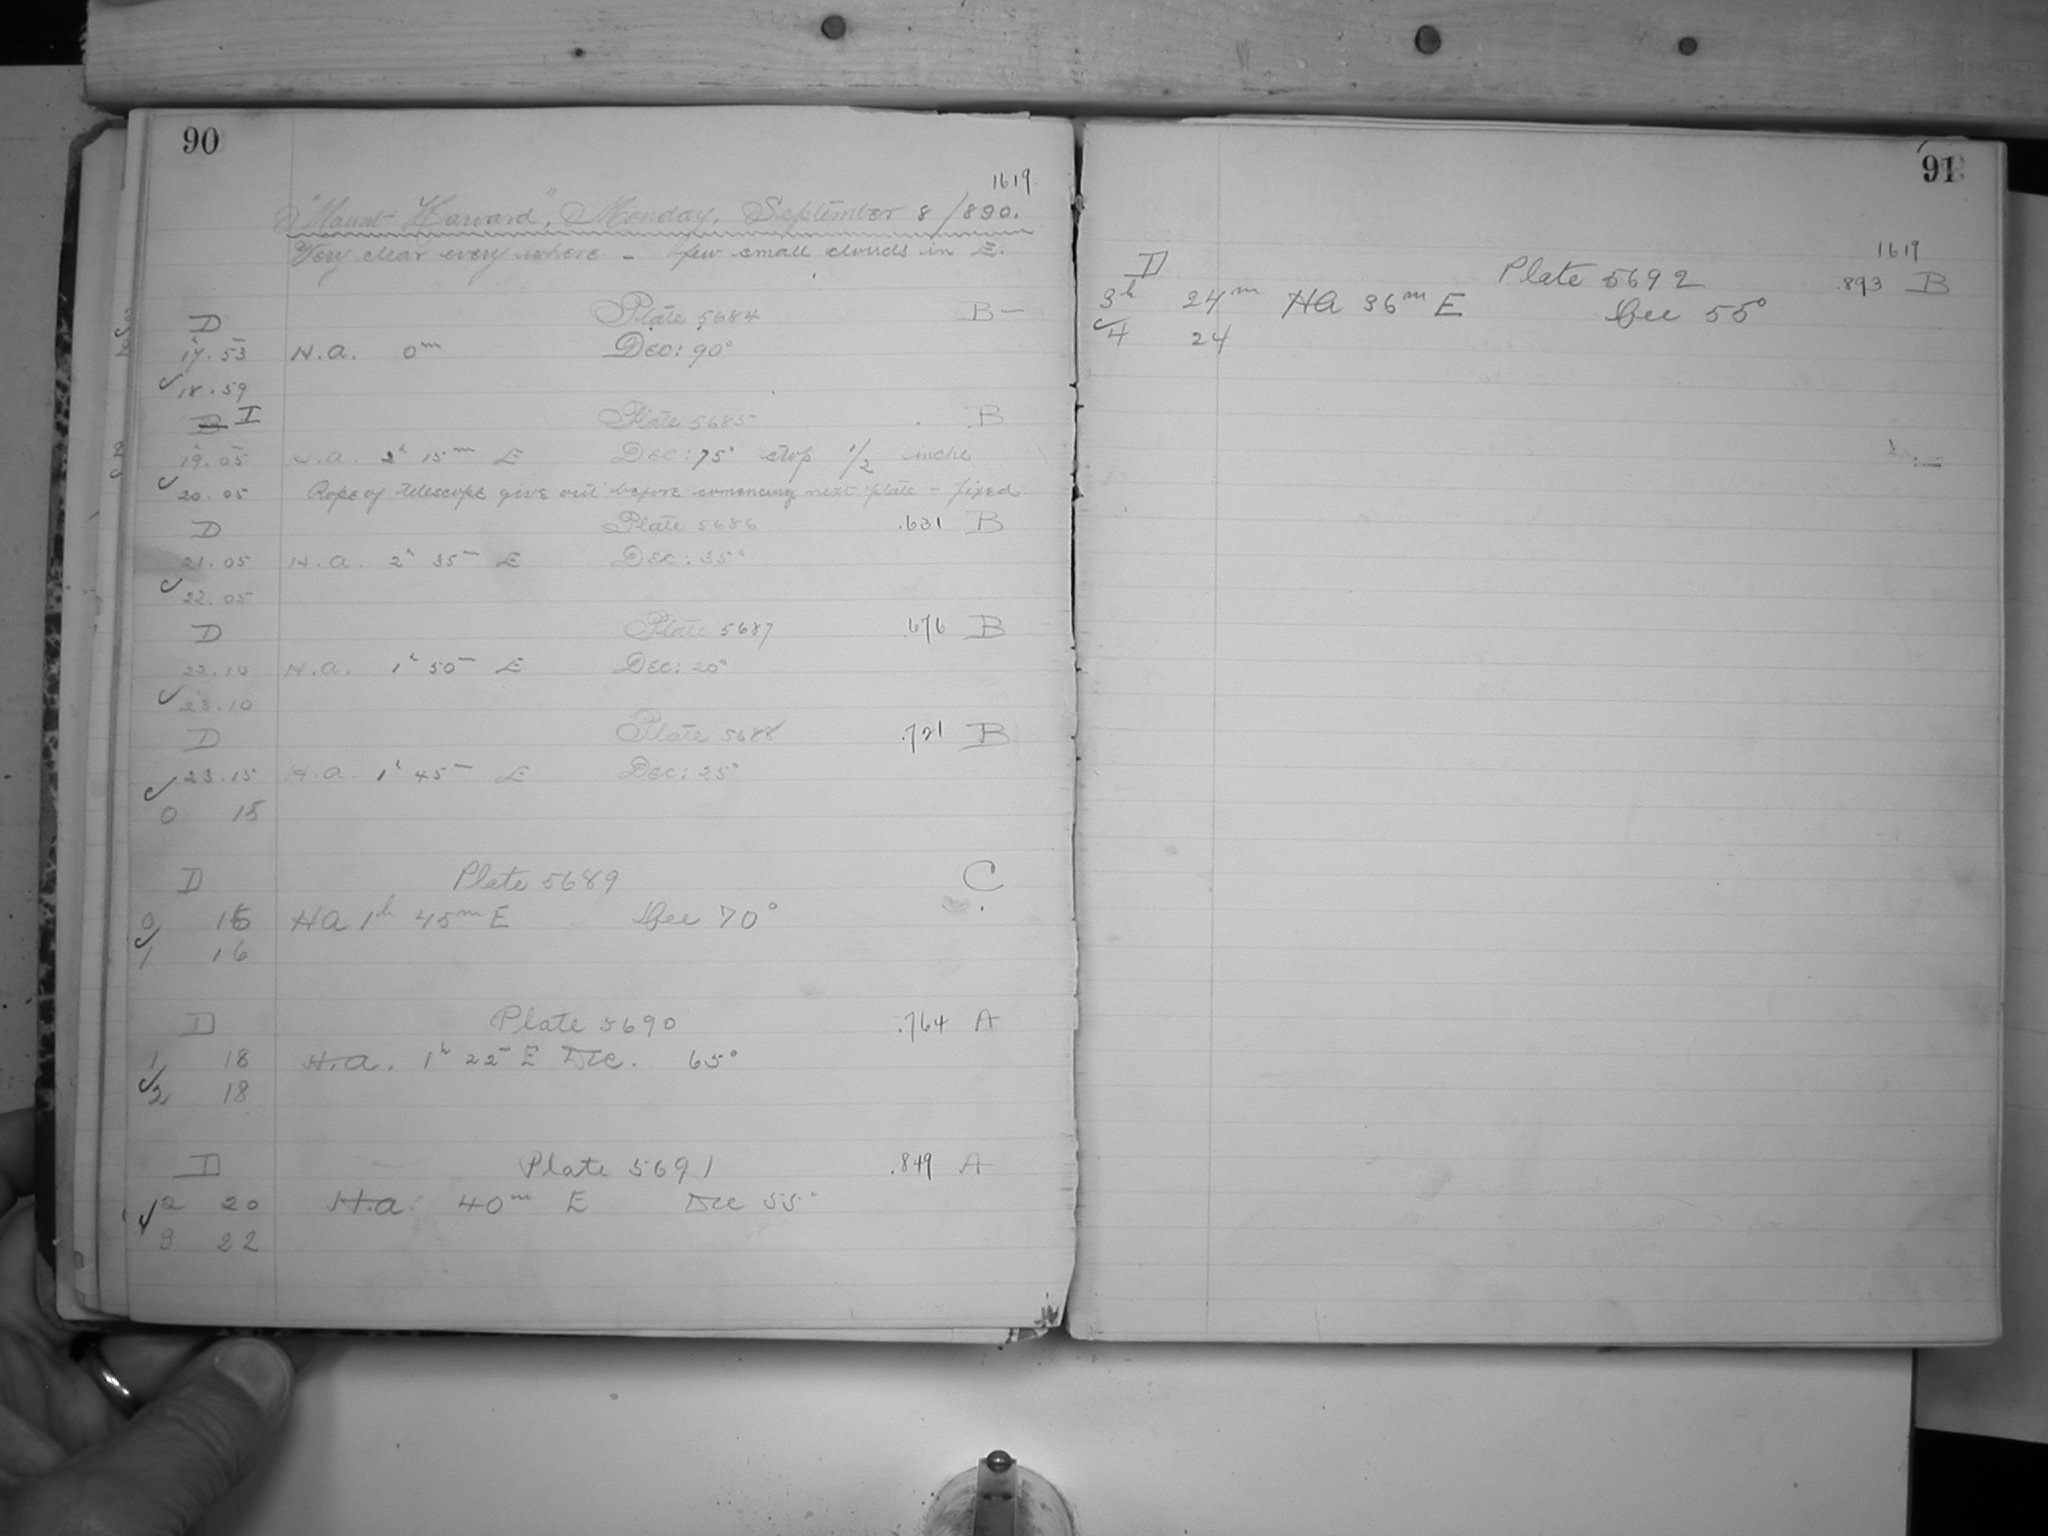 90
1619
"Mount Harvard", Monday, September 8/890.
Very clear every where - few small clouds in E.
D Plate 5684 B-
17.53 H.a. 0m Dec: 90°
18.59
B I Plate 5685 B
19.05 H.a. 2h 15m E Dec: 75° stop 1/2 inche
20.05 Rope of telescope give out before comencing next plate - fixed
D Plate 5686 .631 B
21.05 H.a. 2h 35m E Dec: 35°
22.05
D Plate 5687 .676 B
22.10 H.a. 1h 50m E Dec: 20°
23.10
D Plate 5688 .721 B
23.15 H.a. 1h 45m E Dec: 25°
0 15
D Plate 5689 C
0 16 HA 1h 45m E Dec 70°
1 16
D Plate 5690 .764 A
1 18 H.a. 1h 22m E Dec. 65°
2 18
D Plate 5691 .849 A
2 20 H.a. 40m E Dec 55°
3 22
91
1619
D Plate 5692 .893 B
3h 24m HA 36m E Dec 55°
4 24